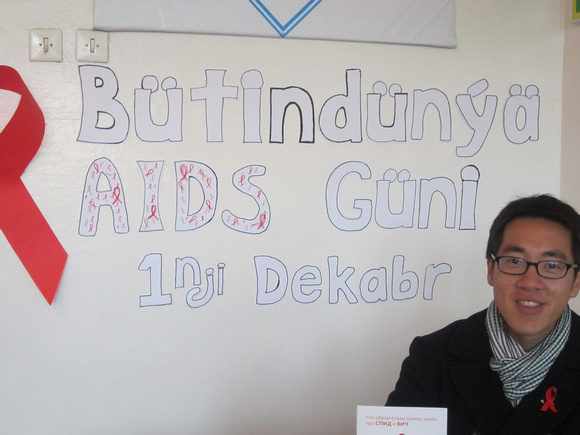 Bütindünýä
AIDS Güni
1nji Dekabr
Что обязательно нужно знать
про СПИД и ВИЧ